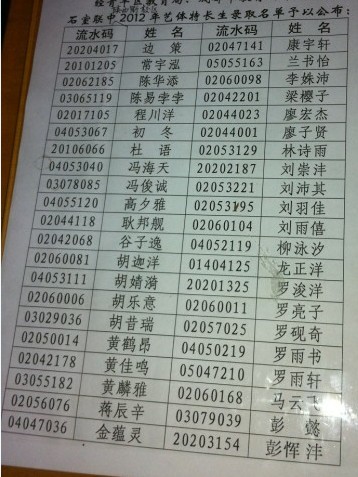 石室联中2012年艺体特长生录取名单予以公布:
流水码 流水码
20204017 边策 02047141 康宇轩
20101205 常宇泓 05055163 兰书怡
02062185 陈华添 02060098 李姝沛
03065119 陈易孛孛 02042201 梁樱子
02017105 程川洋 02044023 廖宏杰
04053067 初冬 02044001 廖子贤
20106066 杜语 02053129 林诗雨
04053040 冯海天 20202187 刘崇沣
03078085 冯俊诚 02053221 刘沛其
04055120 高夕雅 02053195 刘羽佳
02044118 耿邦舰 02060104 刘雨僖
02042068 谷子逸 04052119 柳泳汐
02060081 胡迦洋 01404125 龙正洋
04053111 胡婧漪 20201325 罗浚洋
02060006 胡乐意 02060011 罗亮子
03029036 胡昔瑞 02057025 罗砚奇
02050014 黄鹤昂 04050219 罗雨书
02042178 黄佳鸣 05047210 罗雨轩
03055182 黄麟雅 02060168 马云飞
02056076 蒋辰辛 03079039 彭懿
04047036 金蕴灵 20203154 彭恽沣